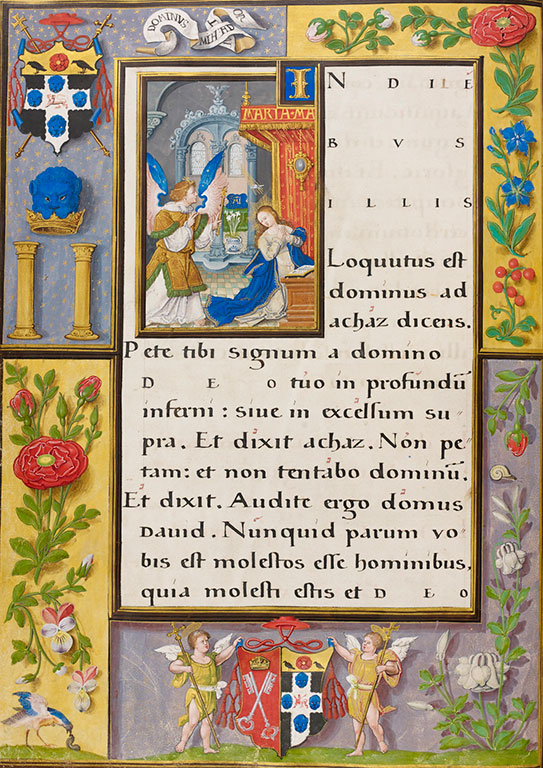 DOMINVS
MIHI AD
MARIA MA
IN DILE
BVS
ILLIS
Loquutus est
dominus ad
achaz dicens.
Pete tibi signum a domino
DEO tuo in profundū
inferni: siue in excelsum su-
pra. Et dixit achaz. Non pe-
tam: et non tentabo dominū.
Et dixit. Audite ergo domus
Dauid. Nunquid parum vo-
bis est molestos esse hominibus,
quia molesti estis et DEO